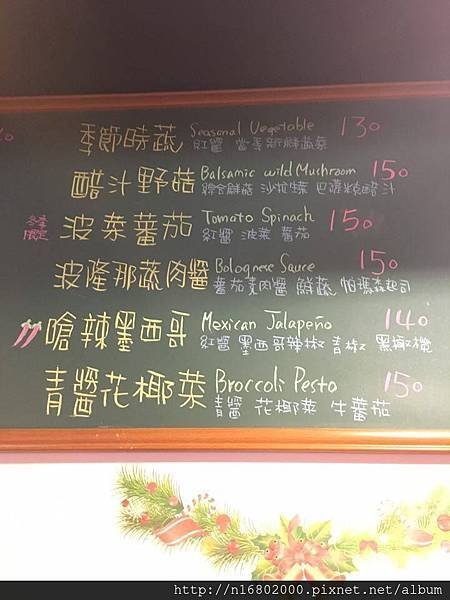 季節時蔬 Seasonal Vegetable 130
紅醬 當季新鮮蔬菜
醋汁野菇 Balsamic wild Mushroom 150
綜合鮮菇 沙拉生菜 巴薩米克醋汁
冬季限定 波菜蕃茄 Tomato Spinach 150
紅醬 波菜 蕃茄
波隆那蔬肉醬 Bolognese Sauce 150
蕃茄蔬肉醬 鮮蔬 帕瑪森起司
嗆辣墨西哥 Mexican Jalapeño 140
紅醬 墨西哥辣椒 青椒 黑橄欖
青醬花椰菜 Broccoli Pesto 150
青醬 花椰菜 牛蕃茄
http://n16802000.pixnet.net/album